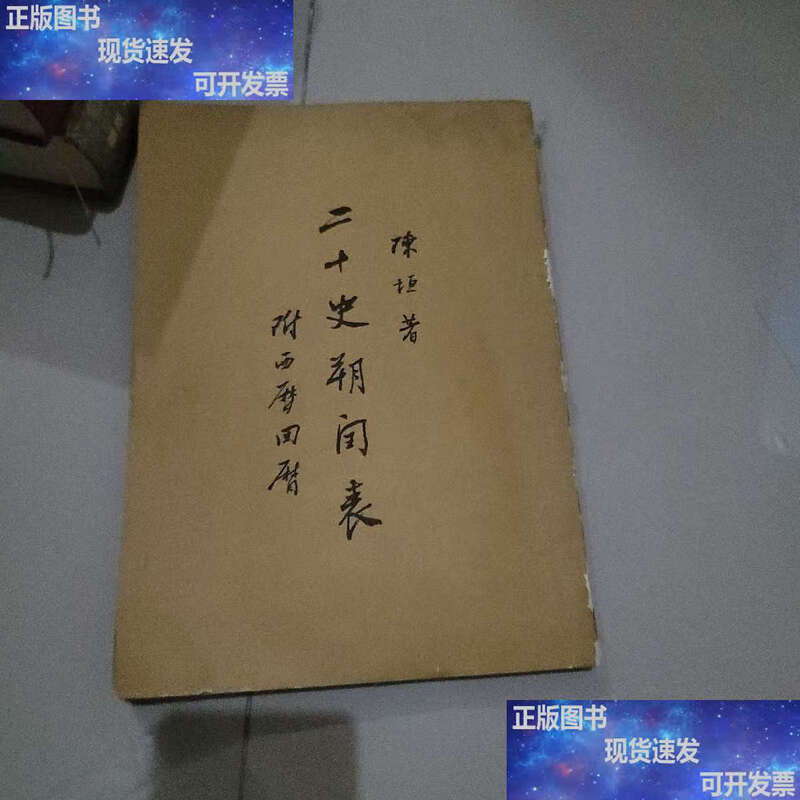 正版图书
现货速发
可开发票
陳垣著
二十史朔闰表
附西曆回曆
正版图书
现货速发
可开发票